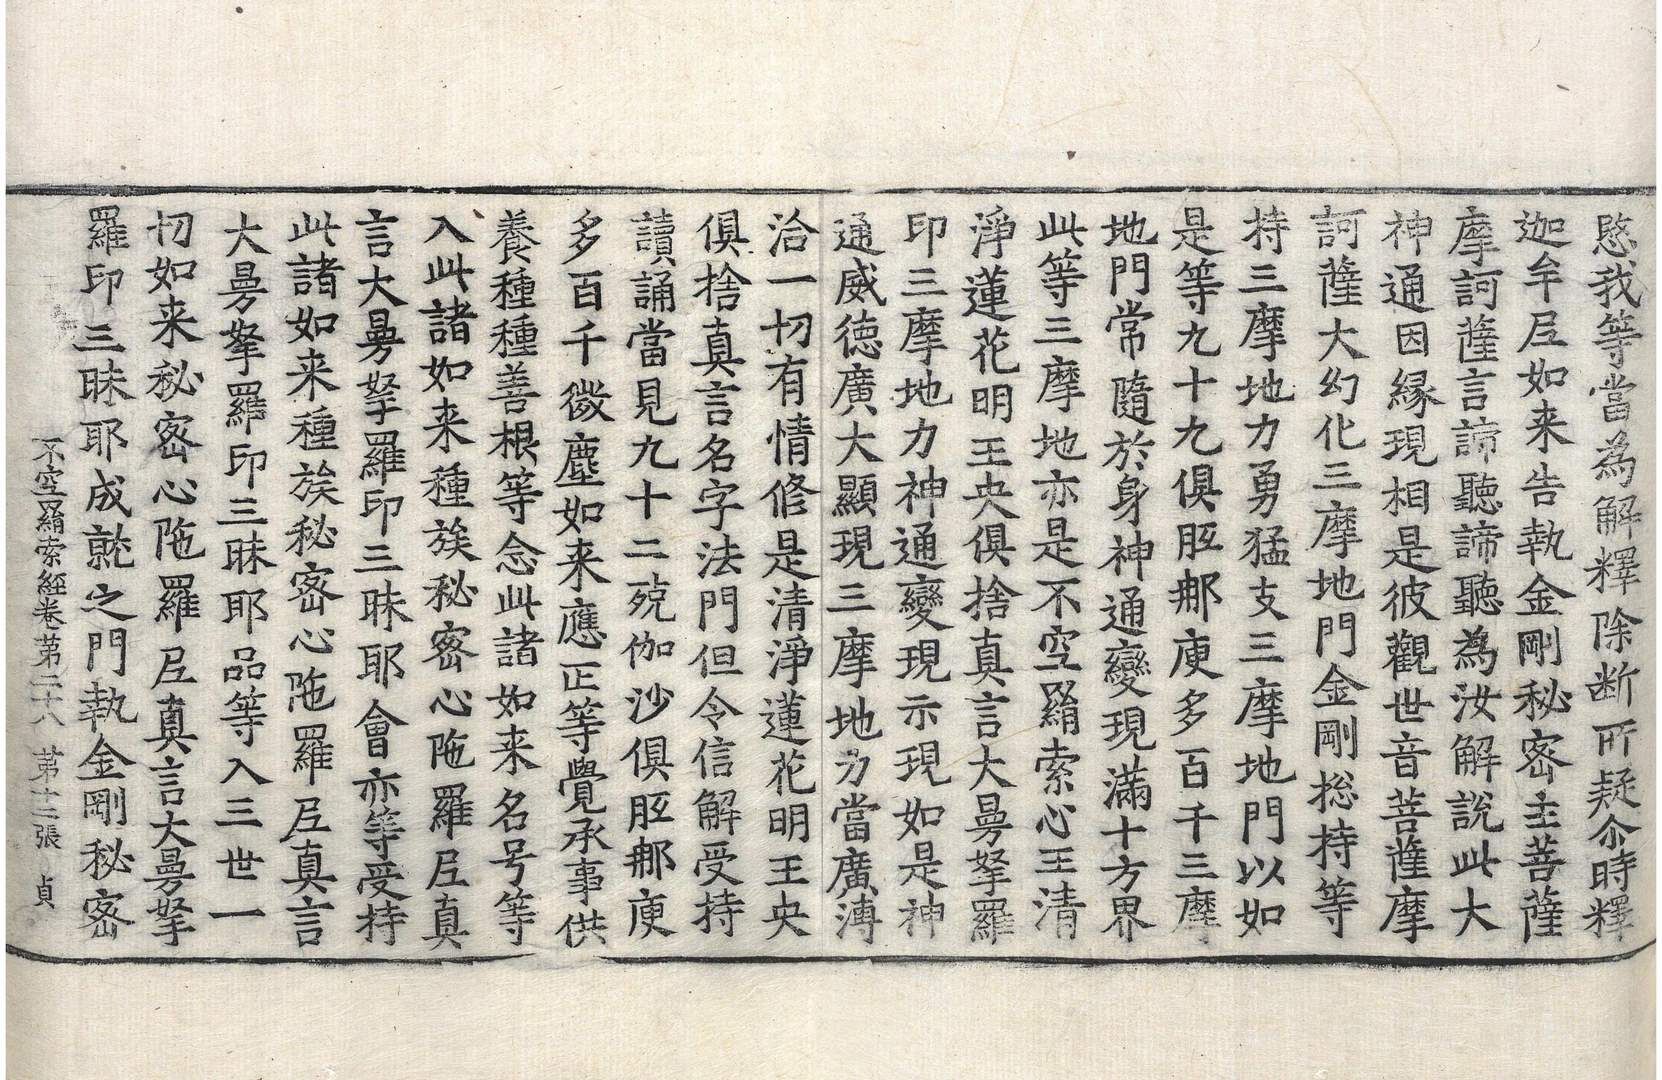 愍我等當為解釋除断所疑尒時釋
迦牟𡰱如来告執金剛秘密主菩薩
摩訶薩言諦聽諦聽為汝解說此大
神通因縁現相是彼觀世音菩薩摩
訶薩大幻化三摩地門金剛捴持等
持三摩地力勇猛支三摩地門以如
是等九十九俱胝𨙻庾多百千三摩
地門常隨於身神通變現滿十方界
此等三摩地亦是不空羂索心王清
淨蓮花明王央俱捨真言大曼拏羅
印三摩地力神通變現示現如是神
通威德廣大顯現三摩地力當廣溥
洽一切有情修是清淨蓮花明王央
俱捨真言名字法門但令信解受持
讀誦當見九十二殑伽沙俱胝𨙻庾
多百千微塵如来應正等覺承事供
養種種善根等念此諸如来名号等
入此諸如来種族秘密心陁羅𡰱真
言大曼拏羅印三昧耶會亦等受持
此諸如来種族秘密心陁羅𡰱真言
大曼拏羅印三昧耶品等入三世一
切如来秘密心陁羅𡰱真言大曼拏
羅印三昧耶成就之門執金剛秘密
不空羂索經卷第二十八 第十三張 貞